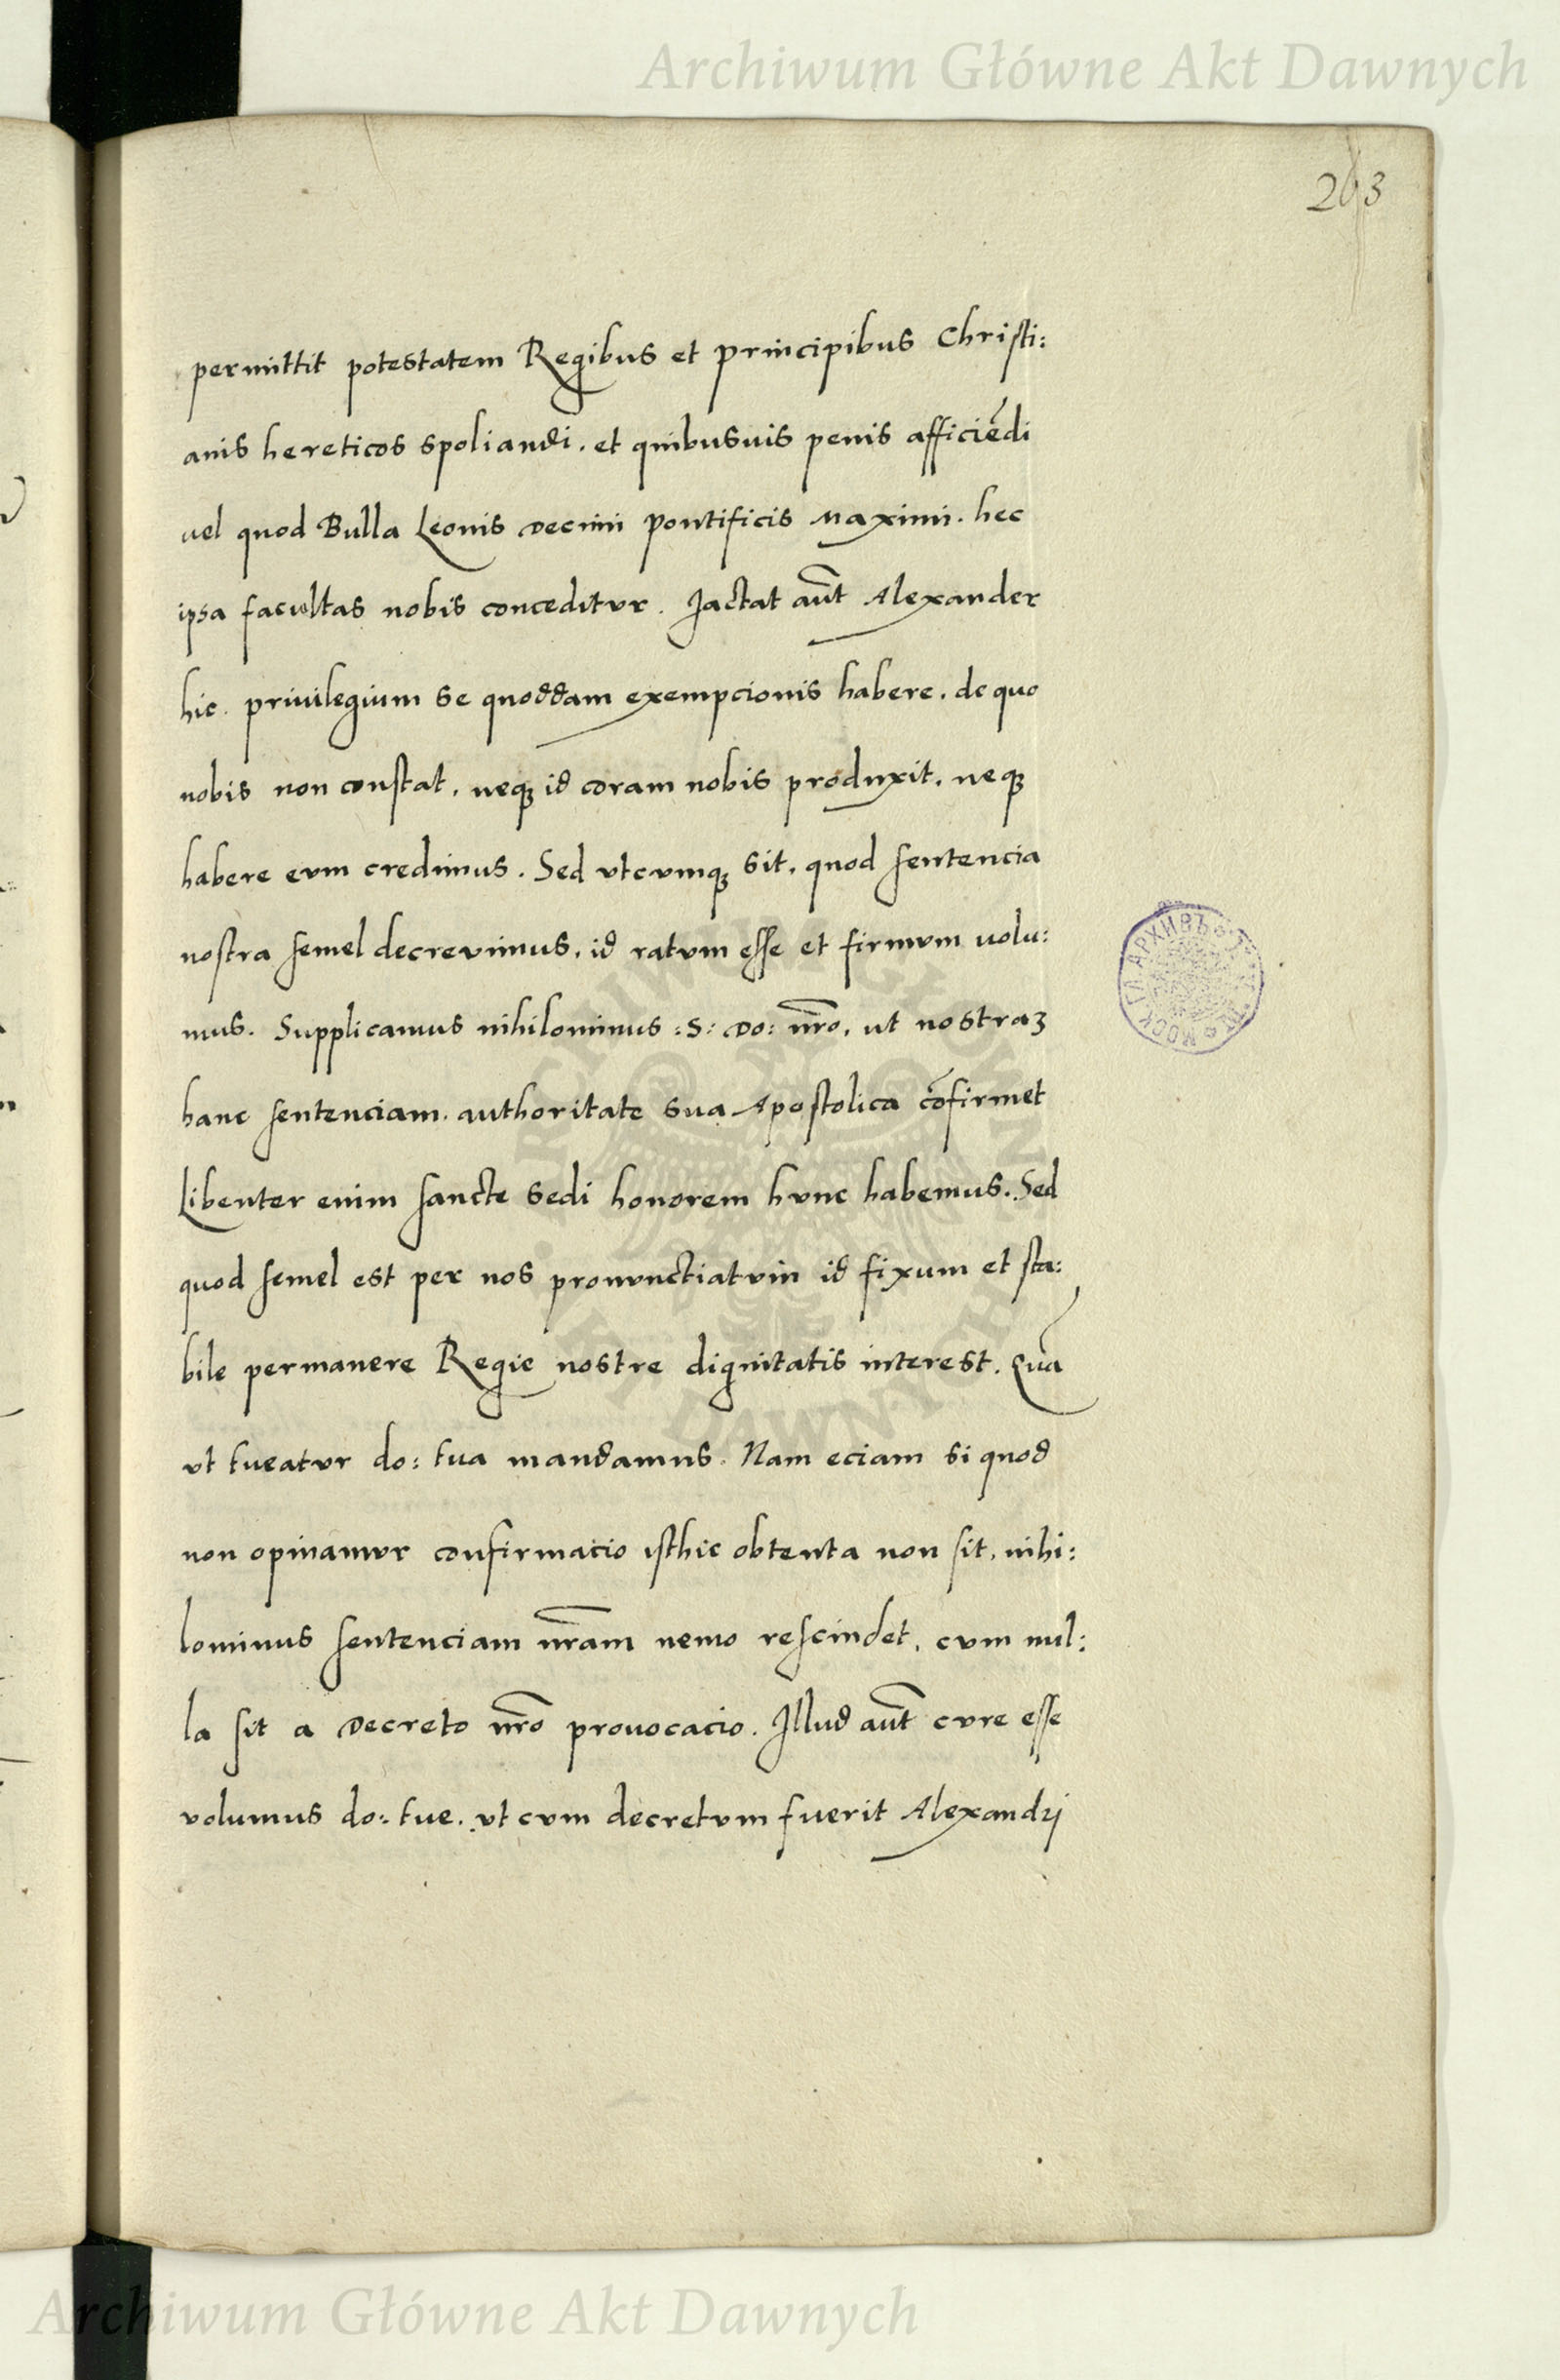 Archiwum Główne Akt Dawnych
263
permittit potestatem Regibus et principibus Christi:
anis hereticos spoliandi. et quibusuis penis afficiēdi
uel quod Bulla Leonis Decimi pontificis Maximi. hec
ipsa facultas nobis conceditur. Jactat aūt Alexander
hic. priuilegium se quoddam exempcionis habere. de quo
nobis non constat, neqȝ id coram nobis produxit, neqȝ
habere eum credimus. Sed vtcumqȝ sit, quod sentencia
nostra semel decreuimus, id ratum esse et firmum uolu:
mus. Supplicamus nihilominus :S: Do: nr̄o, ut nostraȝ
hanc sentenciam. authoritate sua Apostolica cōfirmet
Libenter enim sancte sedi honorem hunc habemus. Sed
quod semel est per nos pronunctiatum id fixum et sta:
bile permanere Regie nostre dignitatis interest. Quā
vt tueatur do: tua mandamus. Nam eciam si quod
non opinamur confirmacio isthic obtenta non sit, nihi:
lominus sentenciam nr̄am nemo rescindet, cum nul:
la sit a Decreto nr̄o prouocacio. Illud aūt cure esse
volumus do: tue. vt cum decretum fuerit Alexandri
МОСК ГЛ АРХИВЪ
ARCHIWUM GŁÓWNE AKT DAWNYCH
Archiwum Główne Akt Dawnych